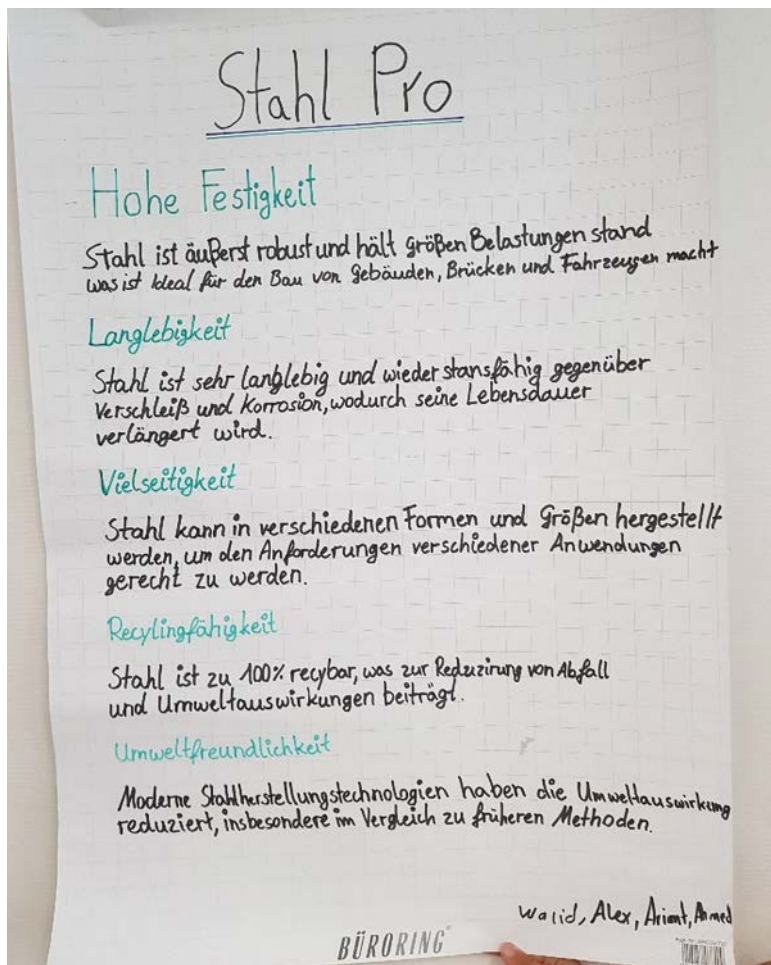 Stahl Pro
Hohe Festigkeit
Stahl ist äußerst robust und hält größen Belastungen stand
was ist Ideal für den Bau von Gebäuden, Brücken und Fahrzeugen macht
Langlebigkeit
Stahl ist sehr langlebig und wiederstansfähig gegenüber
Verschleiß und Korrosion, wodurch seine Lebensdauer
verlängert wird.
Vielseitigkeit
Stahl kann in verschiedenen Formen und Größen hergestellt
werden, um den Anforderungen verschiedener Anwendungen
gerecht zu werden.
Recylingfähigkeit
Stahl ist zu 100% recybar, was zur Reduzirung von Abfall
und Umweltauswirkungen beiträgt.
Umweltfreundlichkeit
Moderne Stahlherstellungstechnologien haben die Umweltauswirkung
reduziert, insbesondere im Vergleich zu früheren Methoden.
Walid, Alex, Ahmed
BÜRORING